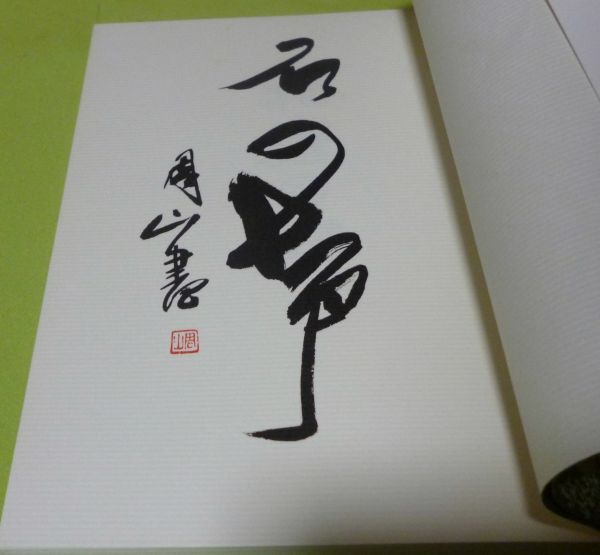 石の
周山書
周山